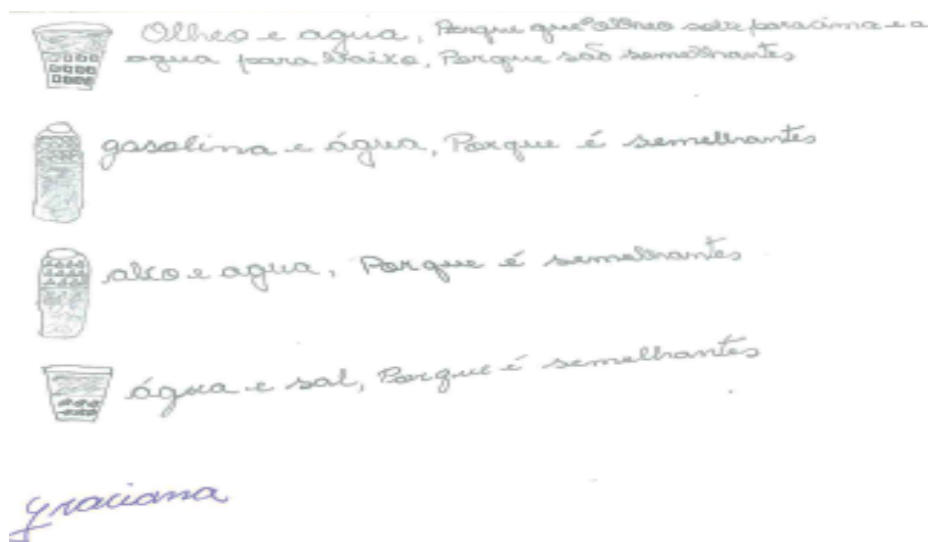 Olheo e agua, Porque que o olheo sobe para cima e a
agua para baixo, Porque são semelhantes
gasolina e água, Porque é semelhantes
alco e agua, Porque é semelhantes
água e sal, Porque é semelhantes
Graciana